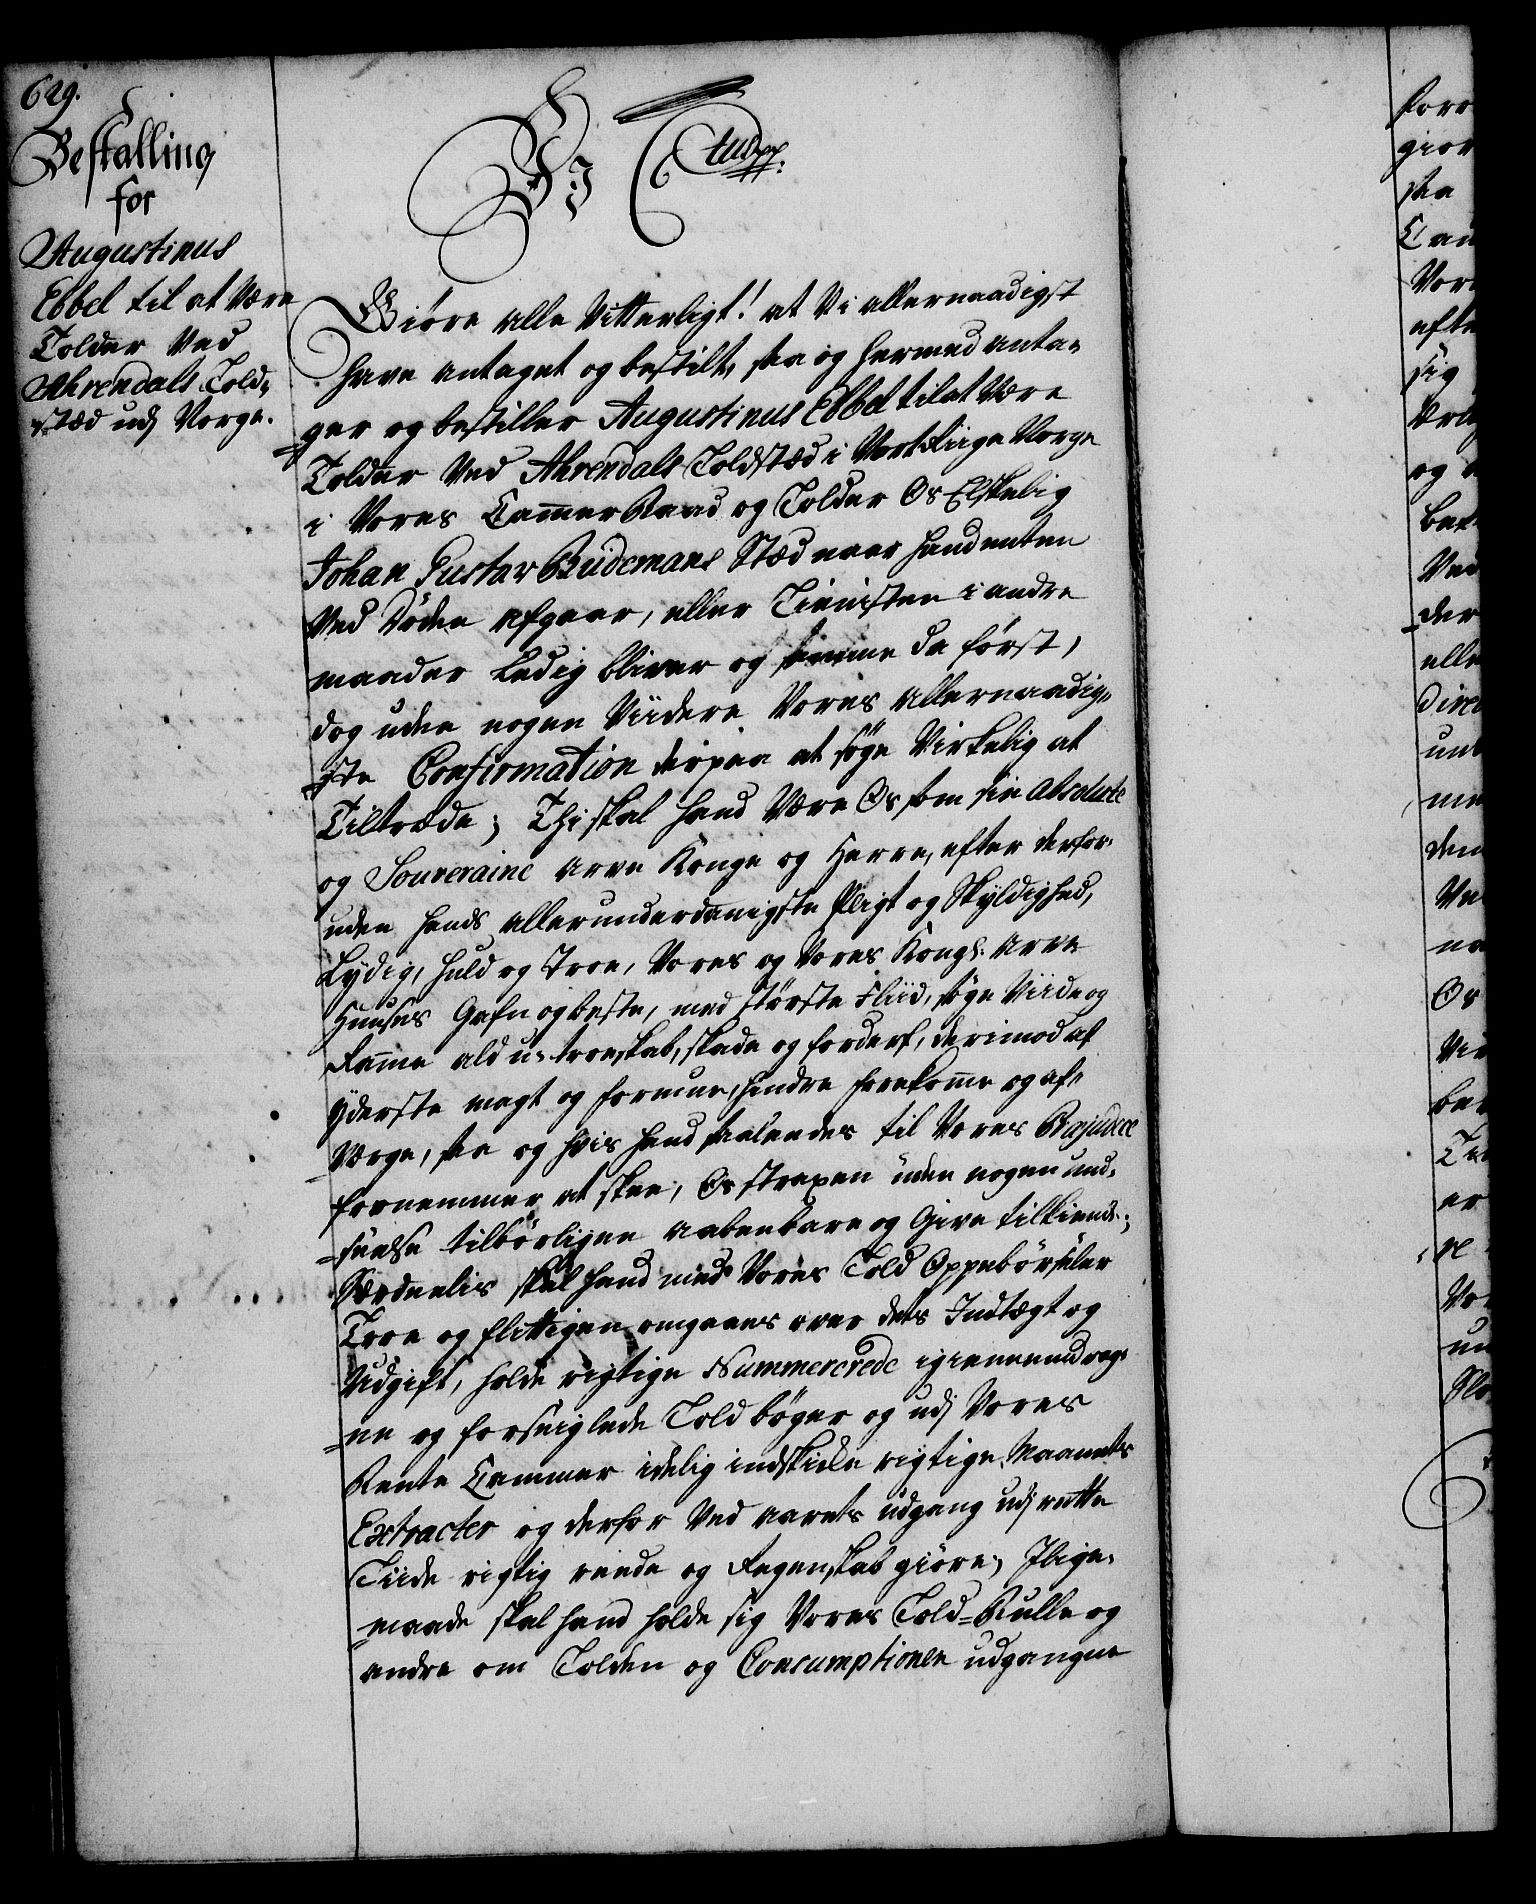 629.
Bestalling
for
Augustinus
Ebbel til at Være
Tolder Ved
Ahrendals Told-
stæd udj Norge.
Vi C
Giöre alle Vitterligt! at Vi allernaadigst
have antaget og bestilt, saa og hermed anta-
ger og bestiller Augustinus Ebbel til at Være
Tolder Ved Ahrendals Toldstæd i Vort Riige Norge
i Vores CammerRaad og Tolder Os Elskelig
Johan Gustav Büdemans Stæd naar hand enten
Ved Döden afgaar, eller Tienisten i andre
maader Ledig bliver og samme da först,
dog uden nogen Viidere Vores Allernaadig-
ste Confirmation derpaa at söge Virkelig at
Tiltræde; Thi skal hand Være Os som sin absolute
og Souveraine Arve Konge og Herre, efter derfor-
uden hands allerunderdanigste Pligt og Skyldighed,
Lydig, huld og Troe, Vores og Vores Kongl: Arve
Huuses Gafn og beste, med störste Fliid, söge Viide og
Ramme ald u-troeskab, skade og forderf, derimod af
yderste magt og formue, hindre forekomme og af-
Værge, saa og hvis hand saaledes til Vores Præjudice
fornemmer at skee, Os strapen uden nogen und-
seelse tilbörligen aabenbare og Give tilkiende;
Særdeelis skal hand med Vores Told Oppebörseler
Troe og flittigen omgaaes over dets Indtægt og
Udgift, holde rigtige Nummererede igiennemdrag-
ne og forseiglede Told böger og udj Vores
Rente Cammer idelig indskikke rigtige Maaneds
Extracter og derfor Ved Aarets udgang udj rette
Tiide rigtig reede og Regenskab giöre; Ilige-
maade skal hand holde sig Vores Told-Rulle og
andre om Tolden og Consumptionen udgangne